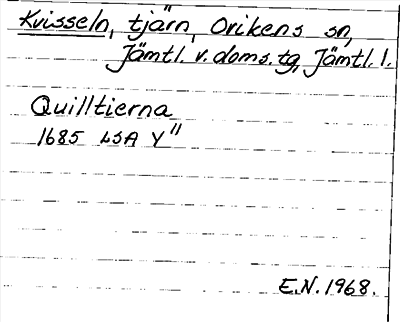 Kvisseln, tjärn, Ovikens sn,
Jämtl. v. doms. tg, Jämtl. l.
Quilltierna
1685 LSA Y"
E.N. 1968.